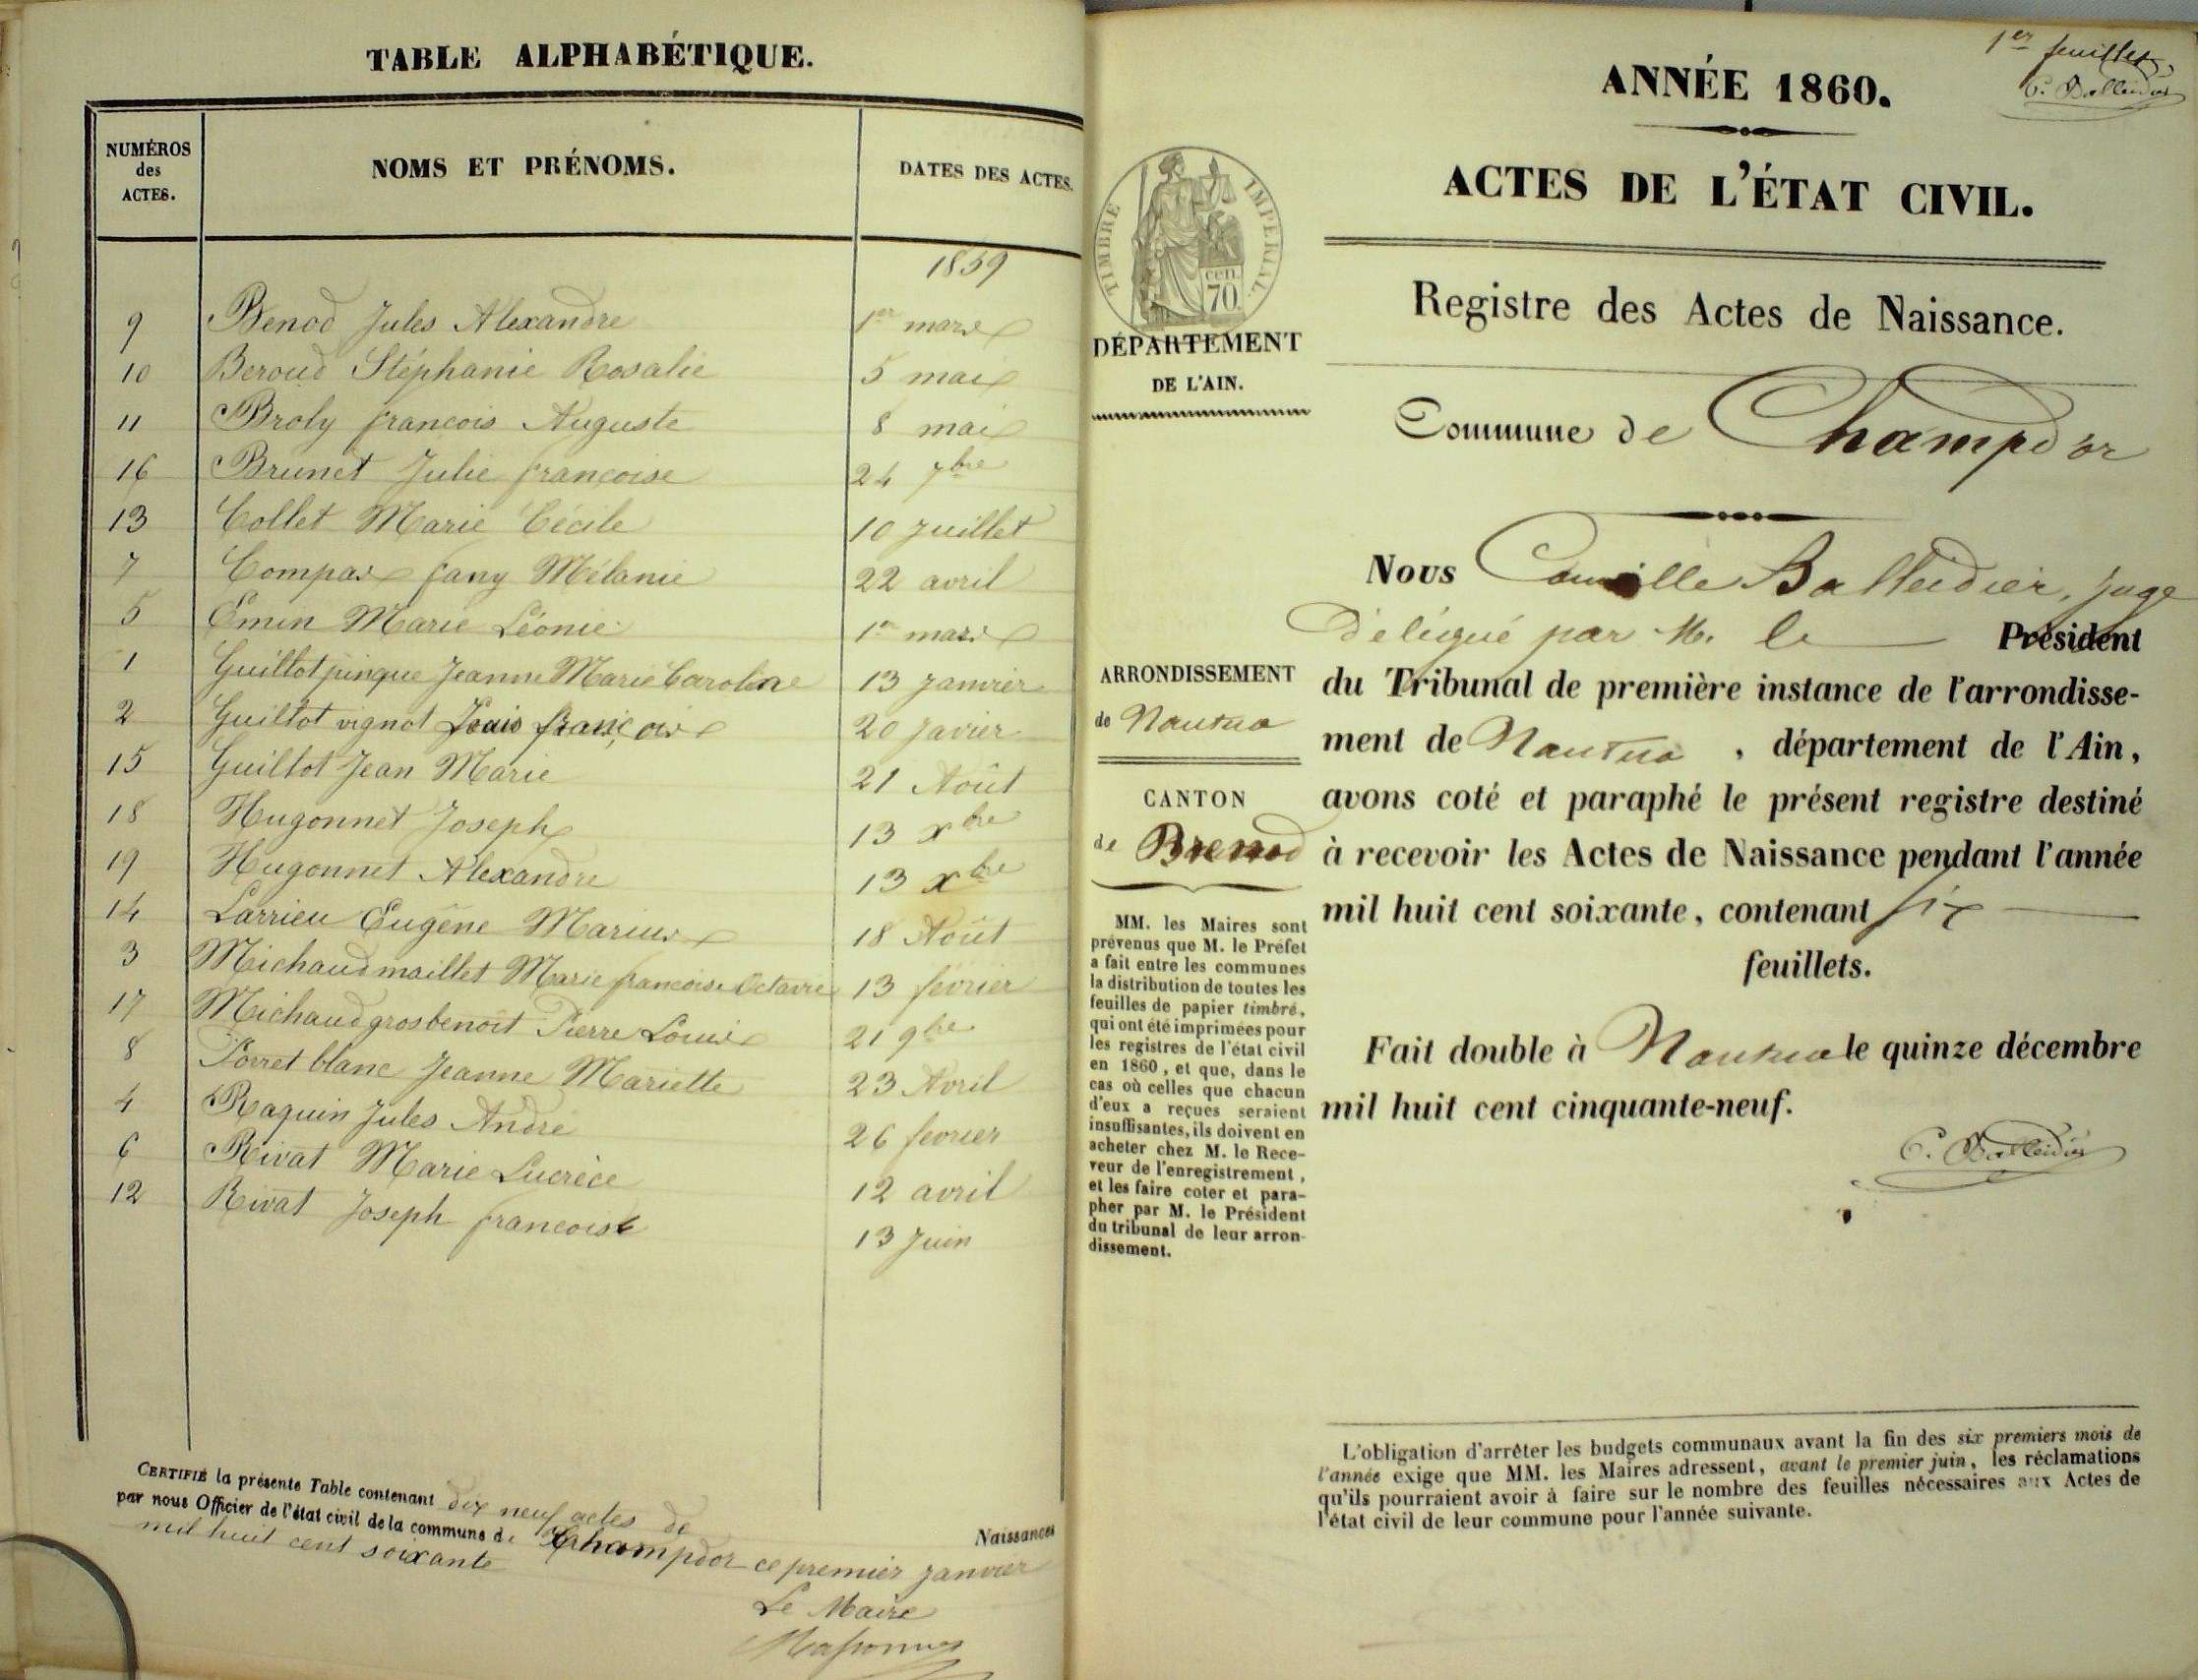 TABLE ALPHABÉTIQUE.
NUMÉROS des ACTES. NOMS ET PRÉNOMS. DATES DES ACTES.
1859
9 Benod Jules Alexandre 1er mars
10 Beroud Stéphanie Rosalie 5 mai
11 Broly françois Auguste 8 mai
16 Brunet Julie françoise 24 7bre
13 Collet Marie Cécile 10 juillet
7 Compas fany Mélanie 22 avril
5 Emin Marie Léonie 1er mars
1 Guillot pinque Jeanne Marie Caroline 13 janvier
2 Guillot vignot Louis françois 20 javier
15 Guillot Jean Marie 21 Août
18 Hugonnet Joseph 13 Xbre
19 Hugonnet Alexandre 13 Xbre
14 Larrieu Eugène Marius 18 Août
3 Michaud maillet Marie francoise Octavie 13 février
17 Michaud grosbenoit Pierre Louis 21 9bre
8 Porret blanc Jeanne Mariette 23 Avril
4 Raquin Jules André 26 fevrier
6 Rivat Marie Lucrèce 12 avril
12 Rivat Joseph francois 13 Juin
CERTIFIÉ la présente Table contenant dix neuf actes de Naissances
par nous Officier de l'état civil de la commune de Champdor ce premier janvier
mil huit cent soixante
Le Maire
1er feuillet
C. Balleidier
ANNÉE 1860.
ACTES DE L'ÉTAT CIVIL.
TIMBRE IMPERIAL
cen.
70
DÉPARTEMENT
DE L'AIN.
Registre des Actes de Naissance.
Commune de Champd'or
ARRONDISSEMENT
de Nantua
CANTON
de Brenod
MM. les Maires sont
prévenus que M. le Préfet
a fait entre les communes
la distribution de toutes les
feuilles de papier timbré,
qui ont été imprimées pour
les registres de l'état civil
en 1860, et que, dans le
cas où celles que chacun
d'eux a reçues seraient
insuffisantes, ils doivent en
acheter chez M. le Rece-
veur de l'enregistrement,
et les faire coter et para-
pher par M. le Président
du tribunal de leur arron-
dissement.
Nous Camille Balleidier, juge
Délégué par M. le Président
du Tribunal de première instance de l'arrondisse-
ment de Nantua, département de l'Ain,
avons coté et paraphé le présent registre destiné
à recevoir les Actes de Naissance pendant l'année
mil huit cent soixante, contenant six
feuillets.
Fait double à Nantua le quinze décembre
mil huit cent cinquante-neuf.
C. Balleidier
L'obligation d'arrêter les budgets communaux avant la fin des six premiers mois de
l'année exige que MM. les Maires adressent, avant le premier juin, les réclamations
qu'ils pourraient avoir à faire sur le nombre des feuilles nécessaires aux Actes de
l'état civil de leur commune pour l'année suivante.